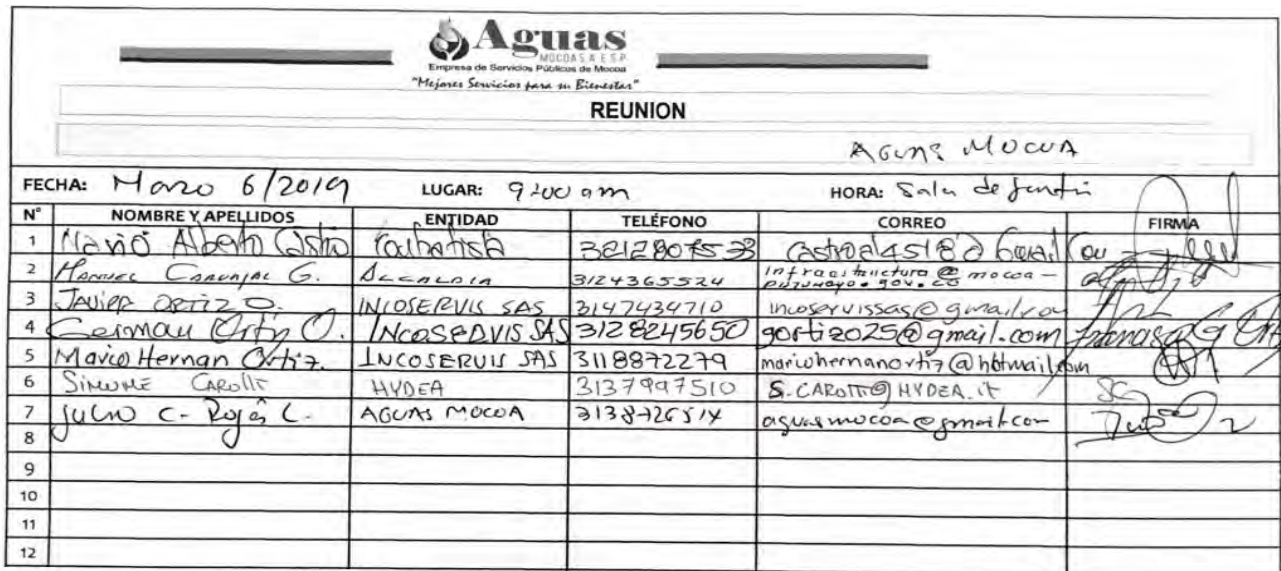 Aguas
MOCOA S.A E.S.P
Empresa de Servicios Públicos de Mocoa
"Mejores Servicios para su Bienestar"
REUNION
AGUAS MOCOA
FECHA: Marzo 6/2019 LUGAR: 9:00 am HORA: Sala de
N° NOMBRE Y APELLIDOS ENTIDAD TELÉFONO CORREO FIRMA
1 Alberto Castro
2 Manuel Carvajal G. ALCALDIA 3124365524 infraestructura@mocoa-
putumayo.gov.co
3 JAVIER ORTIZ O. INCOSERVIS SAS 3147434710 incoservissas@gmail.com
4 German Ortiz O. INCOSERVIS SAS 3128245650 gortizo25@gmail.com
5 Mario Hernan Ortiz. INCOSERVIS SAS 3118872279 mariohernanortiz@hotmail.com
6 SIMONE CAROTTI HYDEA 3137997510 S.CAROTTI@HYDEA.IT SC
7 Julio C. Rojas L. AGUAS MOCOA 3138726514 aguasmocoa@gmail.com
8
9
10
11
12